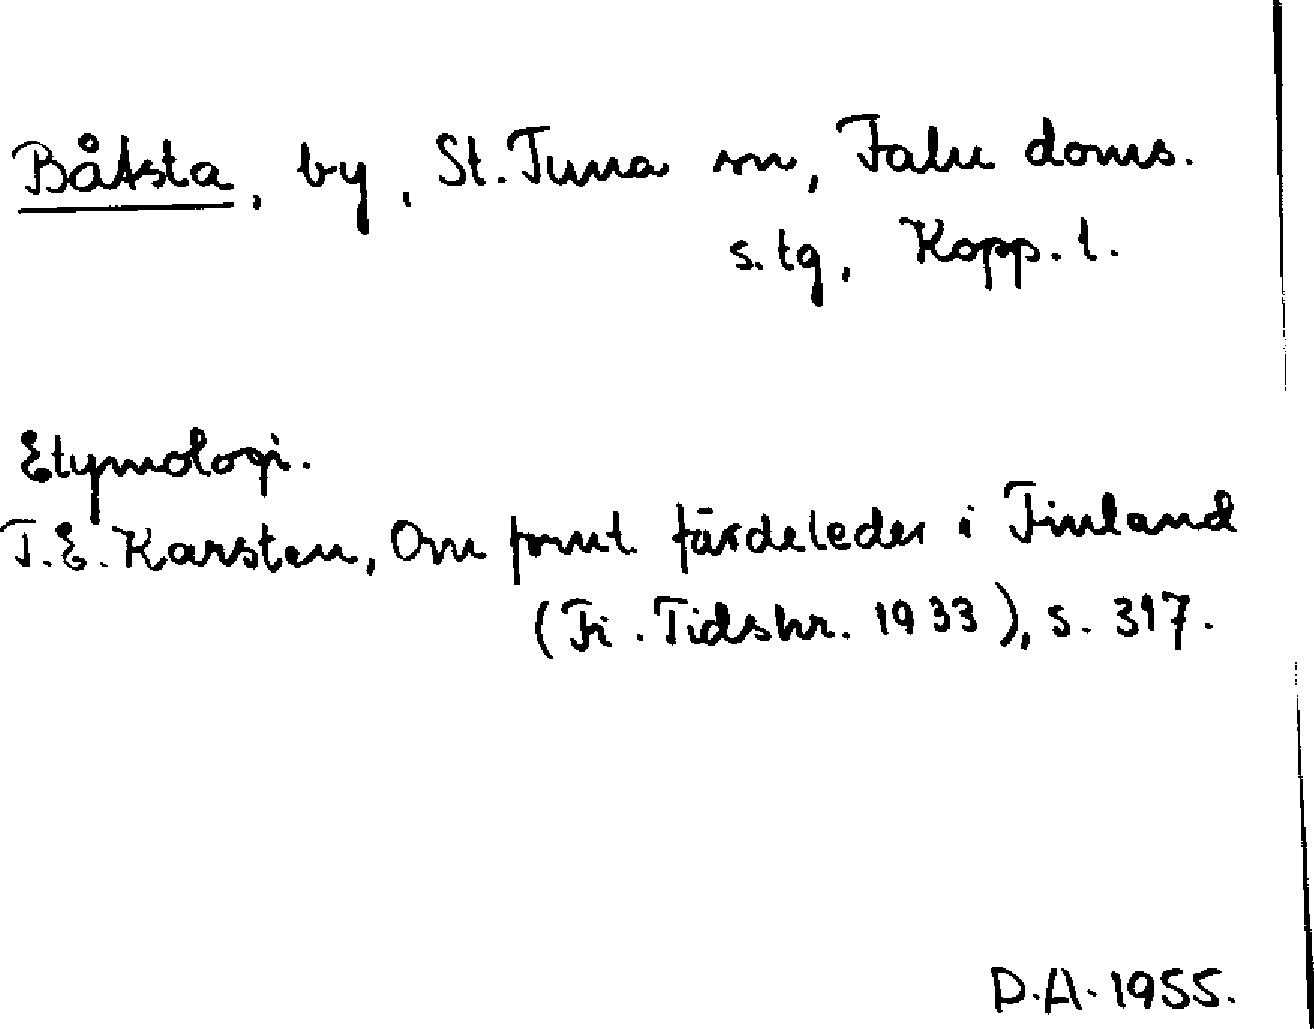 Båtsta, by, St. Tuna sn, Falu doms.
s. tg, Kopp. l.
Etymologi.
T. E. Karsten, Om fornt. färdeleder i Finland
(Fi. Tidskr. 1933), s. 317.
D.A. 1955.